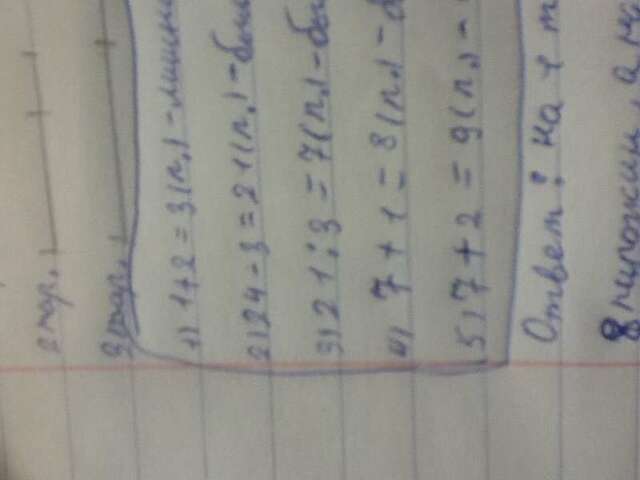 2 тар.
3 тар.
1) 1+2 = 3(п.) - лишн
2) 24 - 3 = 21(п.) - был
3) 21 : 3 = 7(п.) - бы
4) 7 + 1 = 8(п.) -
5) 7 + 2 = 9(п.) -
Ответ: на 1 т
8 пирожки, а на